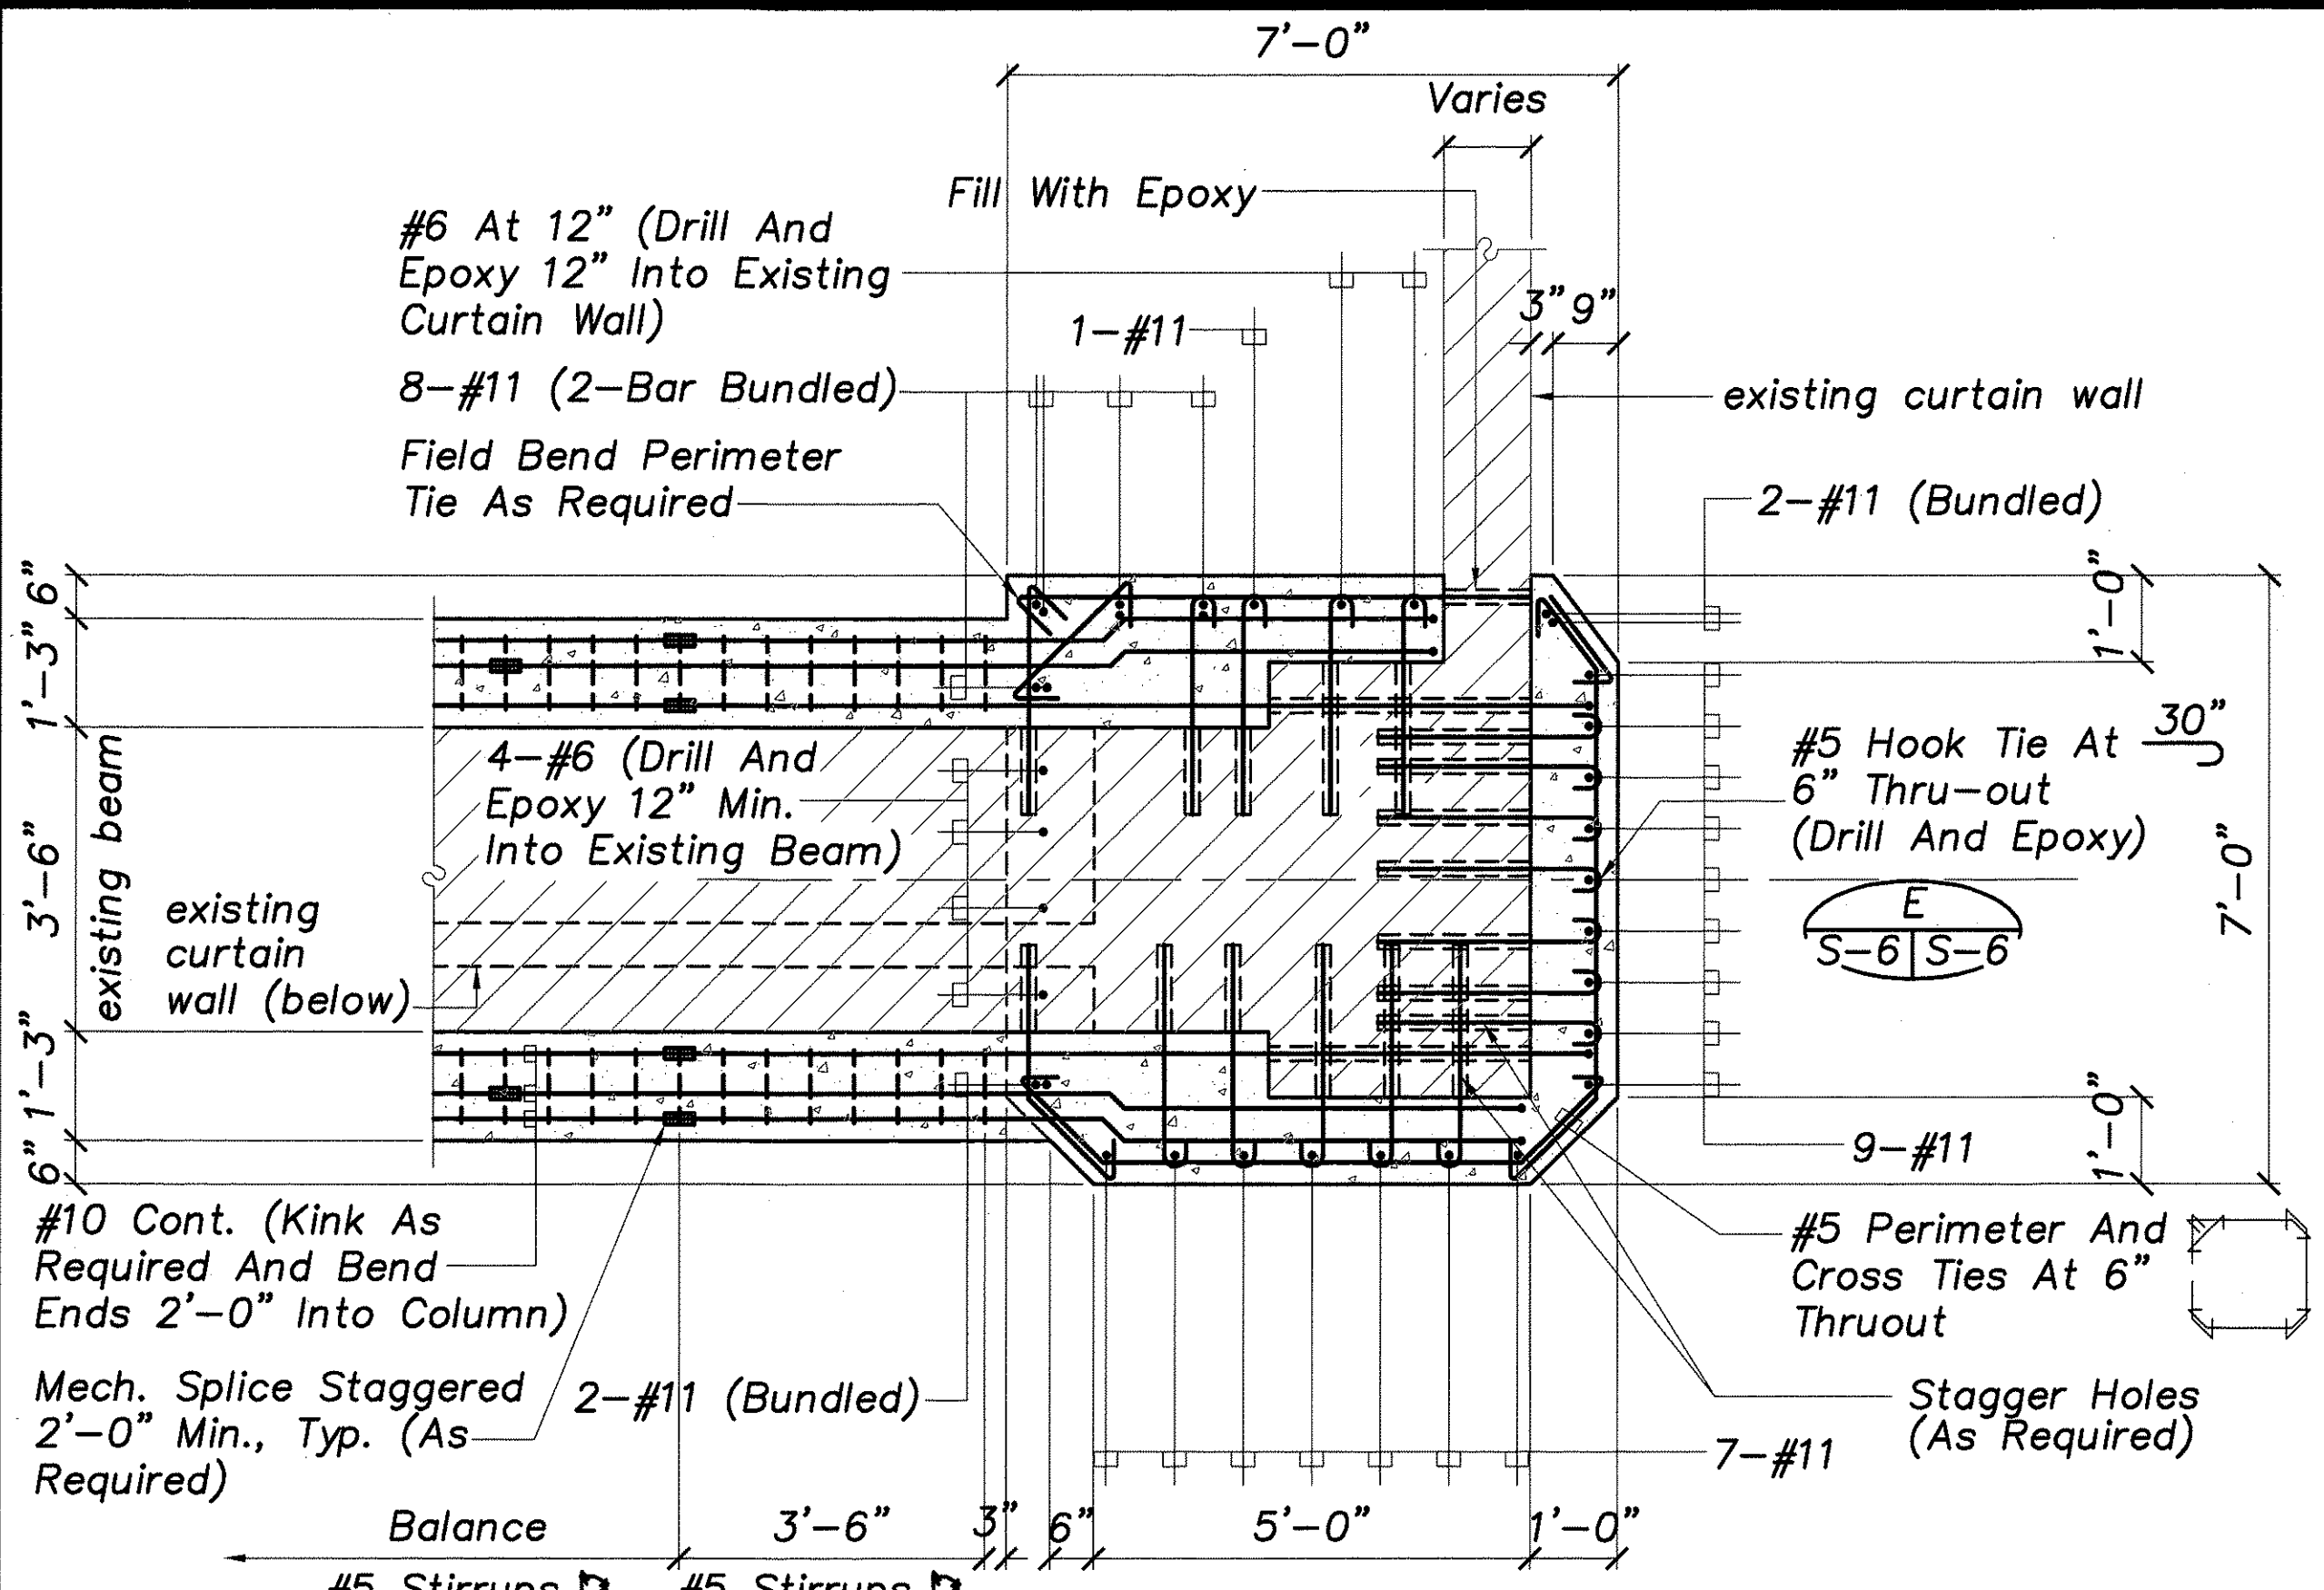 7'-0"
Varies
Fill With Epoxy
#6 At 12" (Drill And
Epoxy 12" Into Existing
Curtain Wall)
3" 9"
1-#11
8-#11 (2-Bar Bundled)
existing curtain wall
Field Bend Perimeter
Tie As Required
2-#11 (Bundled)
6"
1'-3"
3'-6"
1'-3"
6"
existing beam
1'-0"
7'-0"
1'-0"
4-#6 (Drill And
Epoxy 12" Min.
Into Existing Beam)
#5 Hook Tie At
30"
6" Thru-out
(Drill And Epoxy)
existing
curtain
wall (below)
E
S-6 S-6
9-#11
#10 Cont. (Kink As
Required And Bend
Ends 2'-0" Into Column)
#5 Perimeter And
Cross Ties At 6"
Thruout
Mech. Splice Staggered
2'-0" Min., Typ. (As
Required)
2-#11 (Bundled)
Stagger Holes
(As Required)
7-#11
Balance
3'-6"
3"
6"
5'-0"
1'-0"
#5 Stirrups
#5 Stirrups